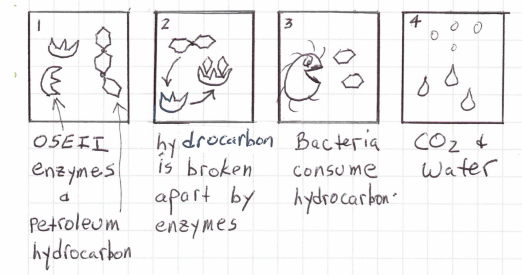 1
OSEII
enzymes
&
Petroleum
hydrocarbon
2
hydrocarbon
is broken
apart by
enzymes
3
Bacteria
consume
hydrocarbon.
4
CO2 &
Water